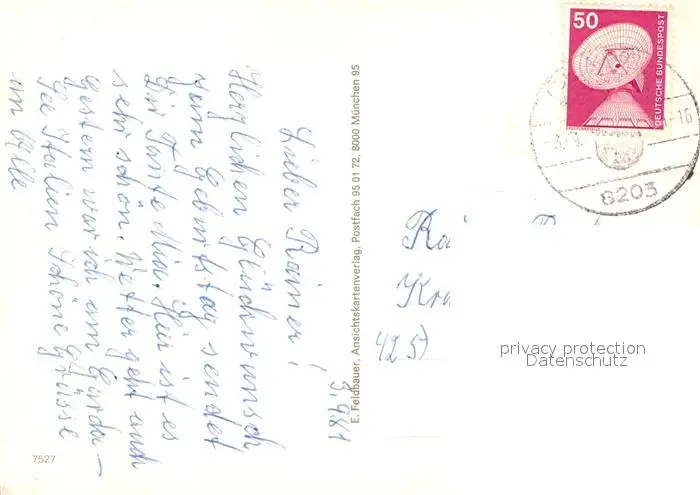 3.9.81
Lieber Rainer!
Herzlichen Glückwunsch
zum Geburtstag sendet
Dir Tante Mia. Hier ist es
sehr schön. Wetter geht auch
Gestern war ich am Garda-
See Italien Schöne Grüsse
an Alle
E. Feldbauer, Ansichtskartenverlag, Postfach 95 01 72, 8000 München 95
7527
50
DEUTSCHE BUNDESPOST
-16
8203
Ra
Kra
425
privacy protection
Datenschutz